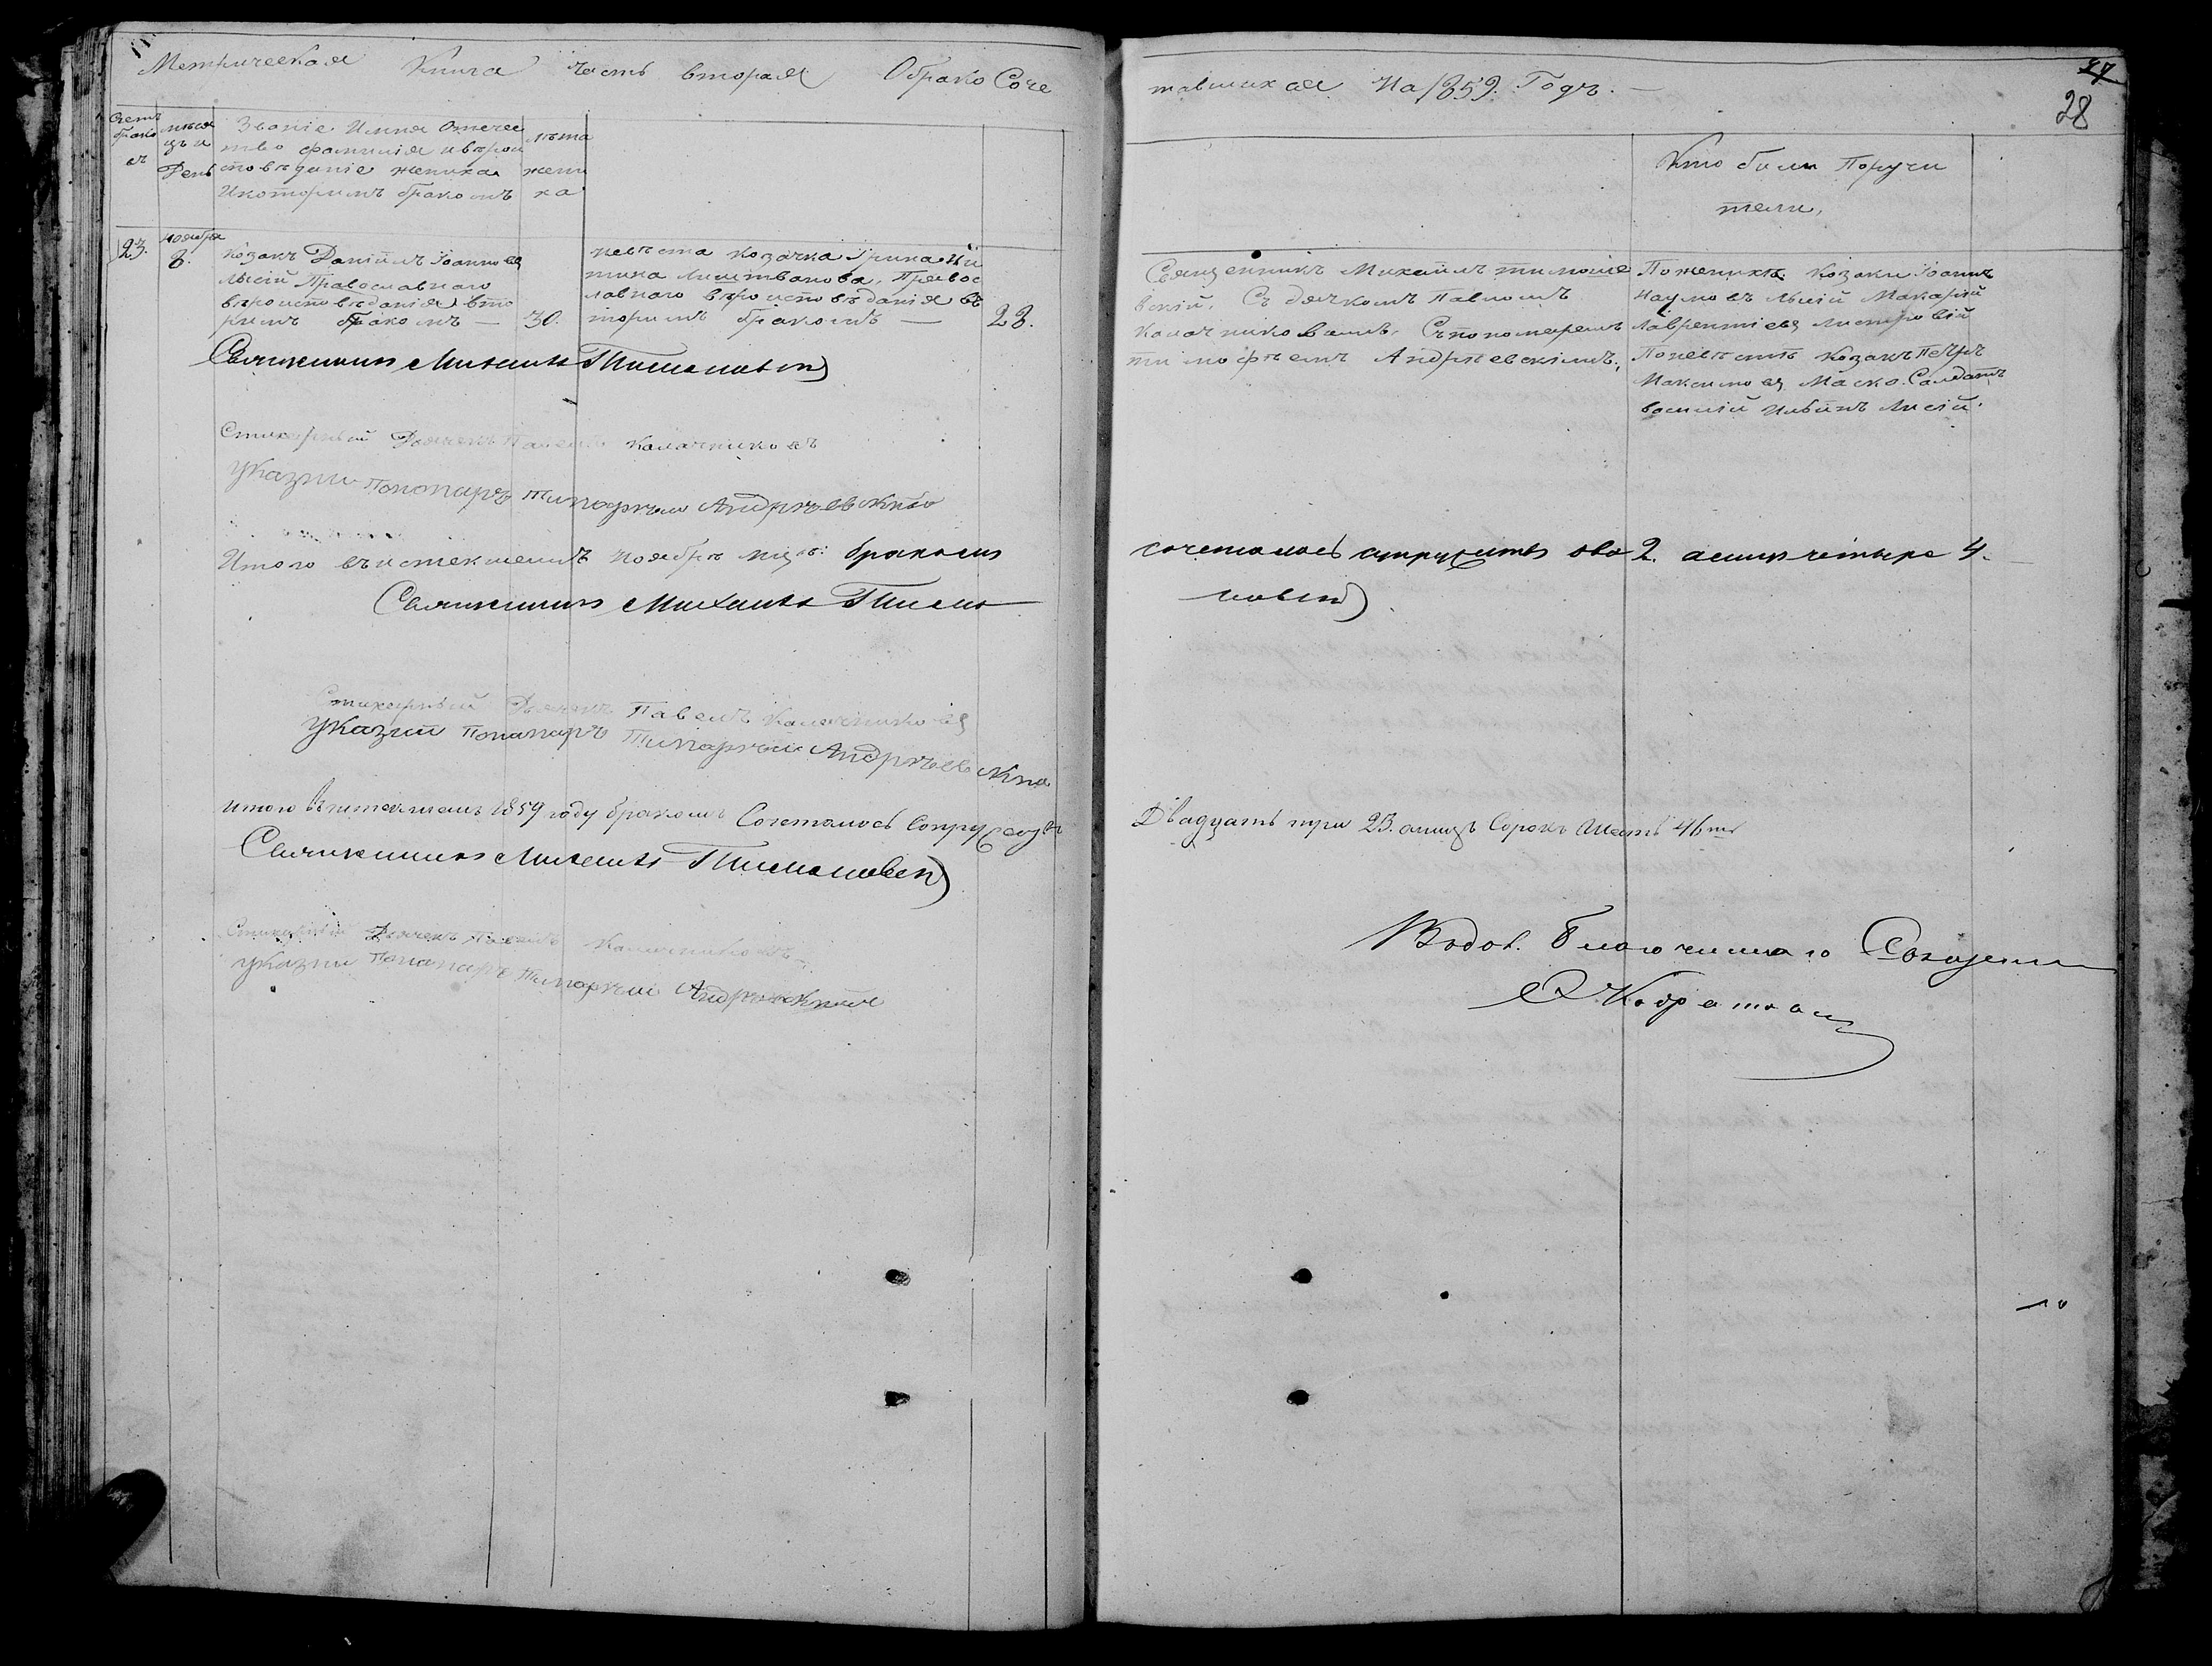 Метрическая Книга часть вторая О брако Соче
тавшихся На 1859. Годъ.
27
28
Счетъ
брако
въ
мѣся
цъ и
День
Званіе Имия Отечес
тво фамилія и вѣрои
сповѣданіе жениха
И которимъ бракомъ
лѣта
жени
ха
Кто били Поручи
тели,
23.
ноября
8.
Козакъ Даніилъ Іоанновъ
Лысій Православнаго
вѣроисповѣданія вто
римъ бракомъ —
30.
невѣста козачка Ірина Ни
тина Православ
лавнаго вѣроисповѣданія вт
торимъ бракомъ —
28.
Священникъ Михаилъ Тимоше
вскій, Съ дячкомъ Павломъ
Калачниковимъ, Съ пономаремъ
тимофѣемъ Андрѣевскімъ,
По женихѣ Козаки Іоаннъ
Наумовъ Лысій Макарій
Лаврентіевъ
По невѣстѣ Козакъ Петръ
Максимовъ Маско. Салдатъ
василій Ильинъ Лисій.
Священникъ Михаилъ Тимошевскій
Стихарный Дьячекъ Павелъ Калачниковъ
Указний Пономаръ Тимофѣй Андрѣевскій
Итого въ истекшемъ ноябрѣ мцѣ: бракомъ
сочеталось супружествъ два 2. а лицъ четыре 4.
Священникъ Михаилъ Тимо
шевскій
Стихарный Дьячекъ Павелъ Калачниковъ
Указний Пономаръ Тимофѣй Андрѣевскій
Итого въ истекшемъ 1859 году бракомъ Сочеталось Супружествъ
Двадцать три 23. а лицъ Сорокъ Шесть 46ть
Священникъ Михаилъ Тимошевскій
Стихарный Дьячекъ Павелъ Калачниковъ
Указний Пономаръ Тимофѣй Андрѣевскій
Благочиннаго